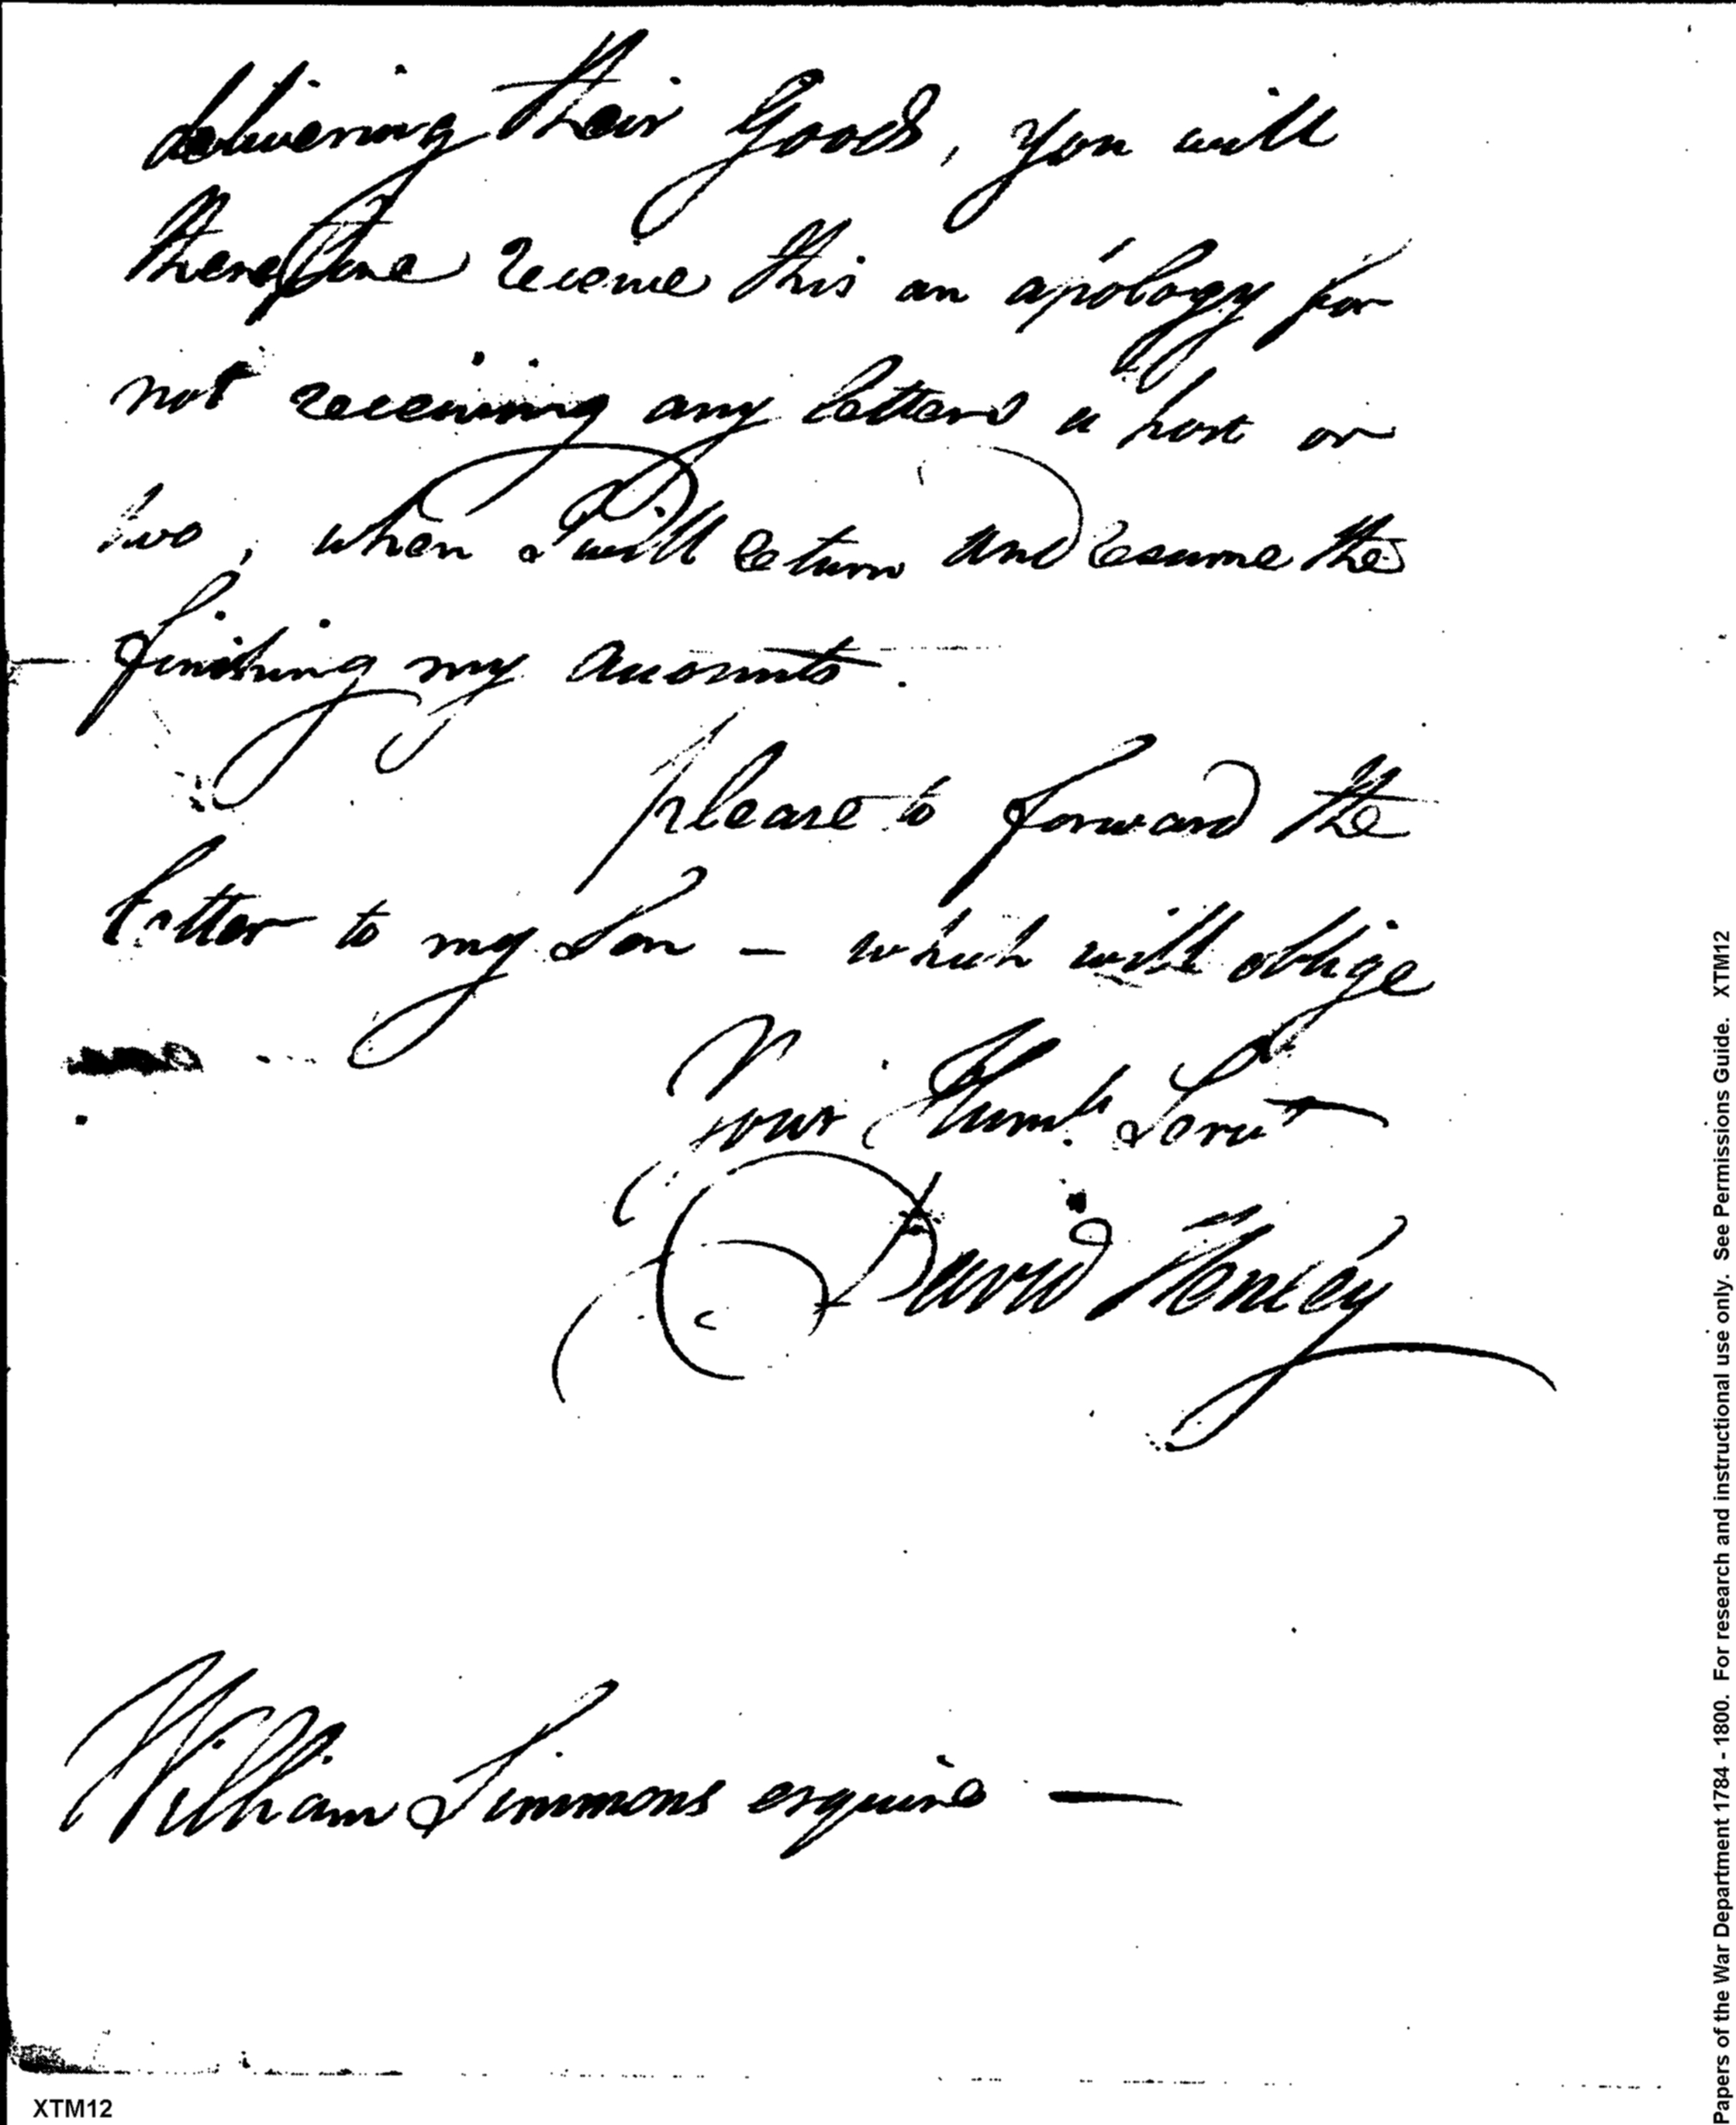 delivering their Goods, you will
therefore receive this an apology for
not receiving any letters a post or
two, when I will return and resume the
finishing my accounts.
please to forward the
letter to my Son — which will oblige
Your Hum.l Servt
David Henley
William Simmons esquire —
Papers of the War Department 1784 - 1800. For research and instructional use only. See Permissions Guide. XTM12
XTM12